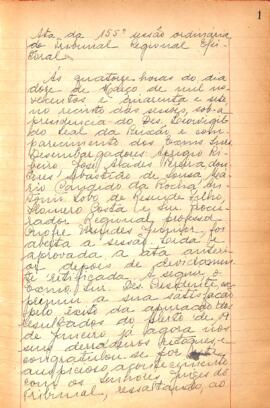 1
Ata da 155ª sessão ordinária
do Tribunal Regional Elei-
toral.
Ás quatorze horas do dia
doze de Março de mil no-
vecentos e quarenta e sete
no recinto das sessões, sob a
presidencia do Des. Leovigil-
do Leal da Paixão e com o
comparecimento dos Exmos. Snrs.
Desembargadores Aprigio Ri-
beiro José, Alcides Pereira, douto-
res Sebastião de Sousa, Ma-
rio Candido da Rocha, An-
tonio Lobo de Resende Filho,
Homero Costa e snr. Procu-
rador Regional, professor
Onofre Mendes Junior, foi
aberta a sessão. Lida e
aprovada a ata anteri-
or, depois de devidamen-
te retificada. A seguir, o
Exmo. Snr. Des. Presidente, ex-
primiu a sua satisfação
pelo exito da apuração dos
resultados do pleito de 19
de Janeiro, já agora nos
seus derradeiros retoques, e
congratulou-se por
auspicioso acontecimento
com os senhores juizes do
Tribunal, ressaltando, ao